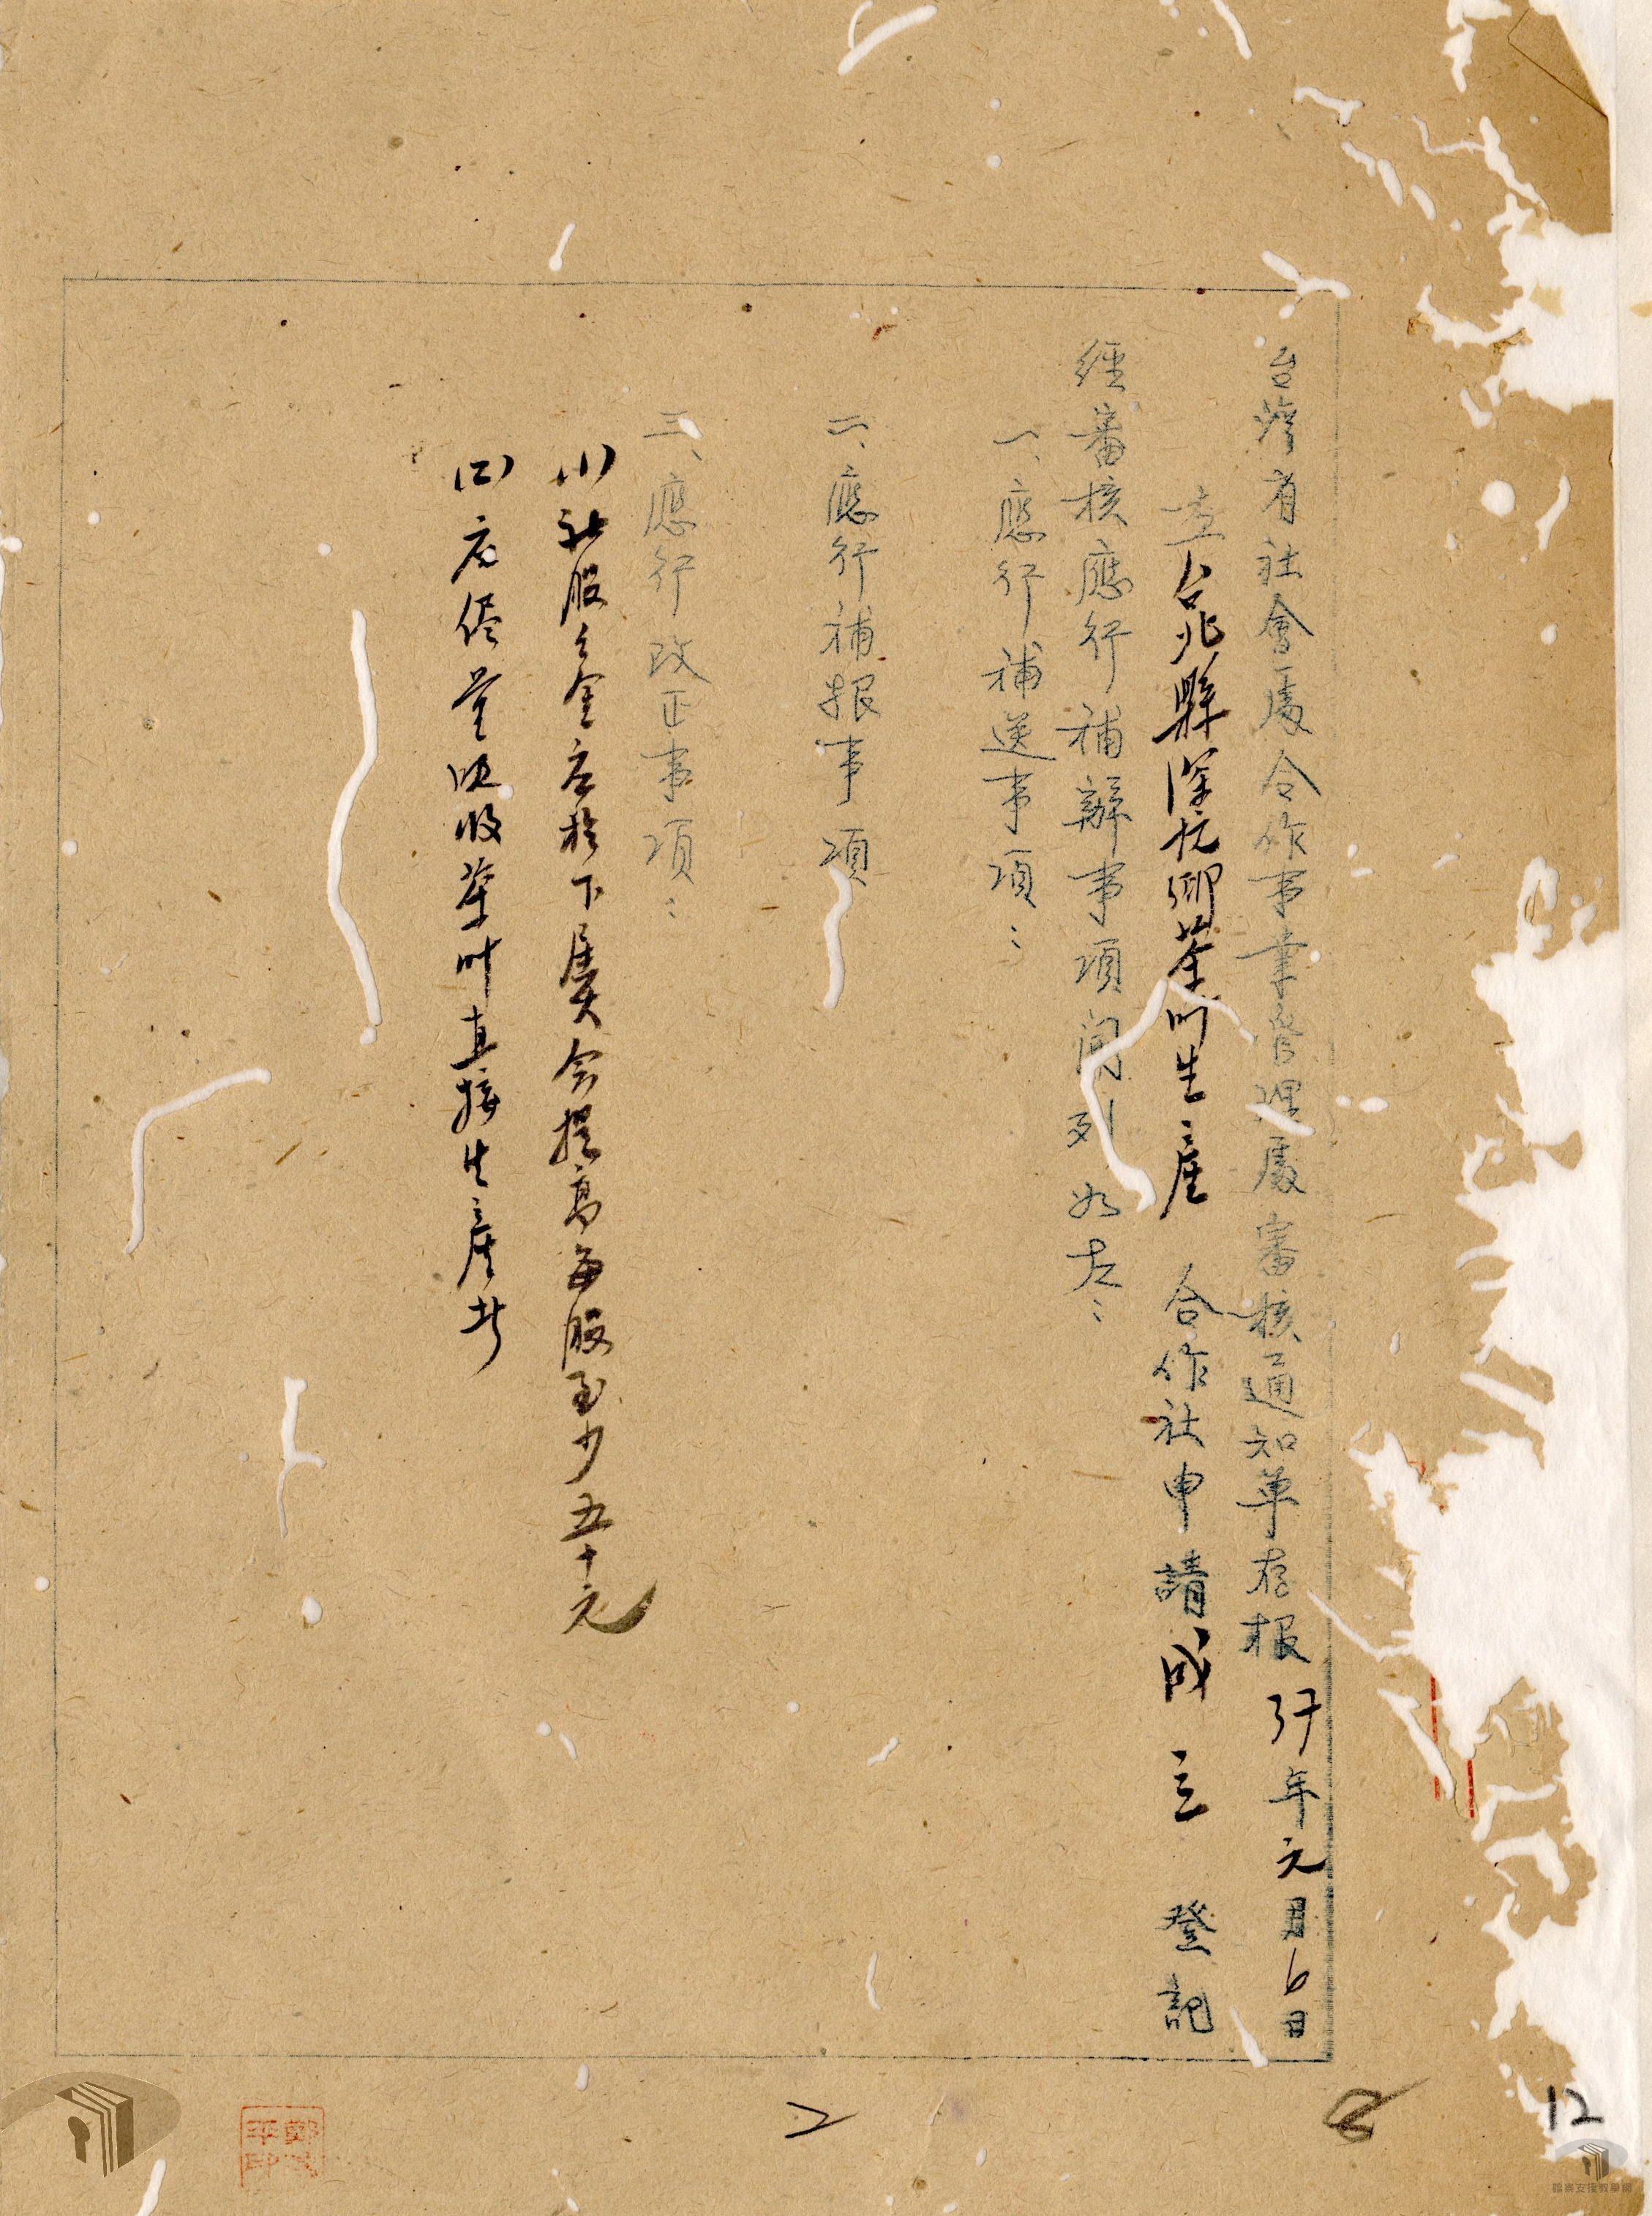 台灣省社會處合作事業管理處審核通知單存根 37年元月6日
查台北縣深坑鄉茶叶生產 合作社申請成立 登記
經審核應行補辦事項開列如左：
一、應行補送事項：
二、應行補報事項
三、應行改正事項：
(1)社股之金应於下屆大会提高每股至少五十元
(2)应儘量吸收茶叶直接生產者
2
12
檔案支援教學網